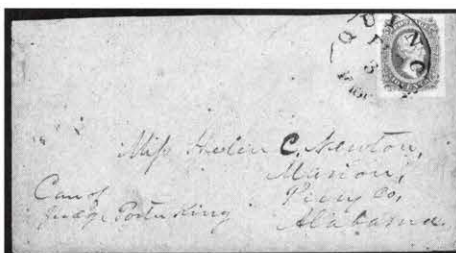 QUINC
5
Miss Helen C. Newton,
Marion,
Perry Co,
Alabama.
Care of
Judge Porter King